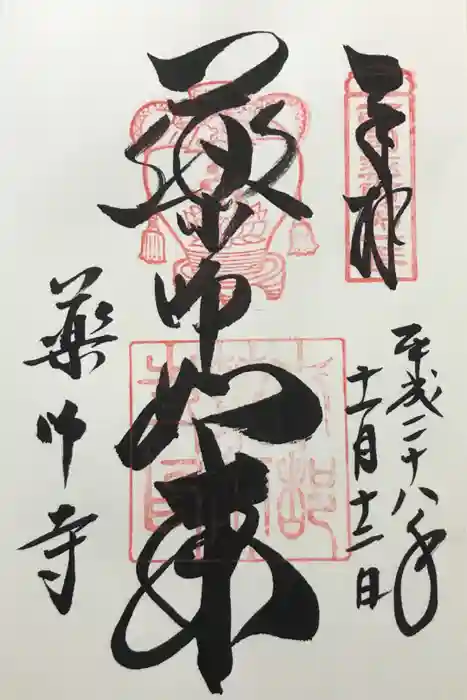 奉拝
平成二十八年
十二月十二日
薬師如来
薬师寺